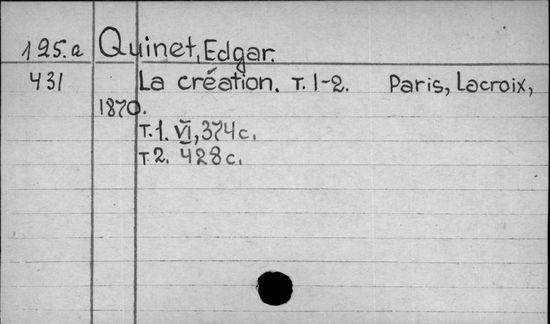 125.a Quinet, Edgar.
431 La création. т. 1-2. Paris, Lacroix,
1870.
т. 1. VI, 374 с.
т. 2. 428 с.